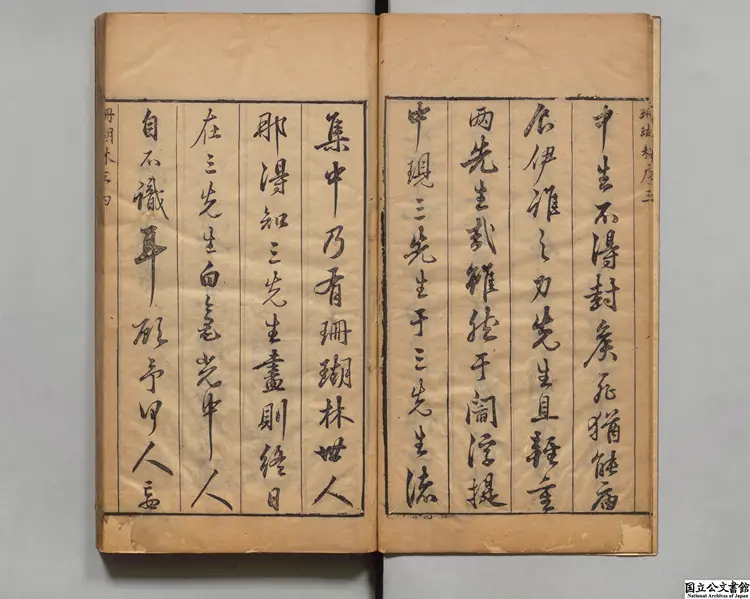 珊瑚林序三
中生不得封侯死猶能廟
食伊誰之力先生且難重
兩先生哉雖然于閻浮提
中現三先生于三先生
集中乃有珊瑚林世人
那得知三先生盡則終日
在三先生白毫光中人
自不識耳顧予何人妄
珊瑚林
国立公文書館
National Archives of Japan